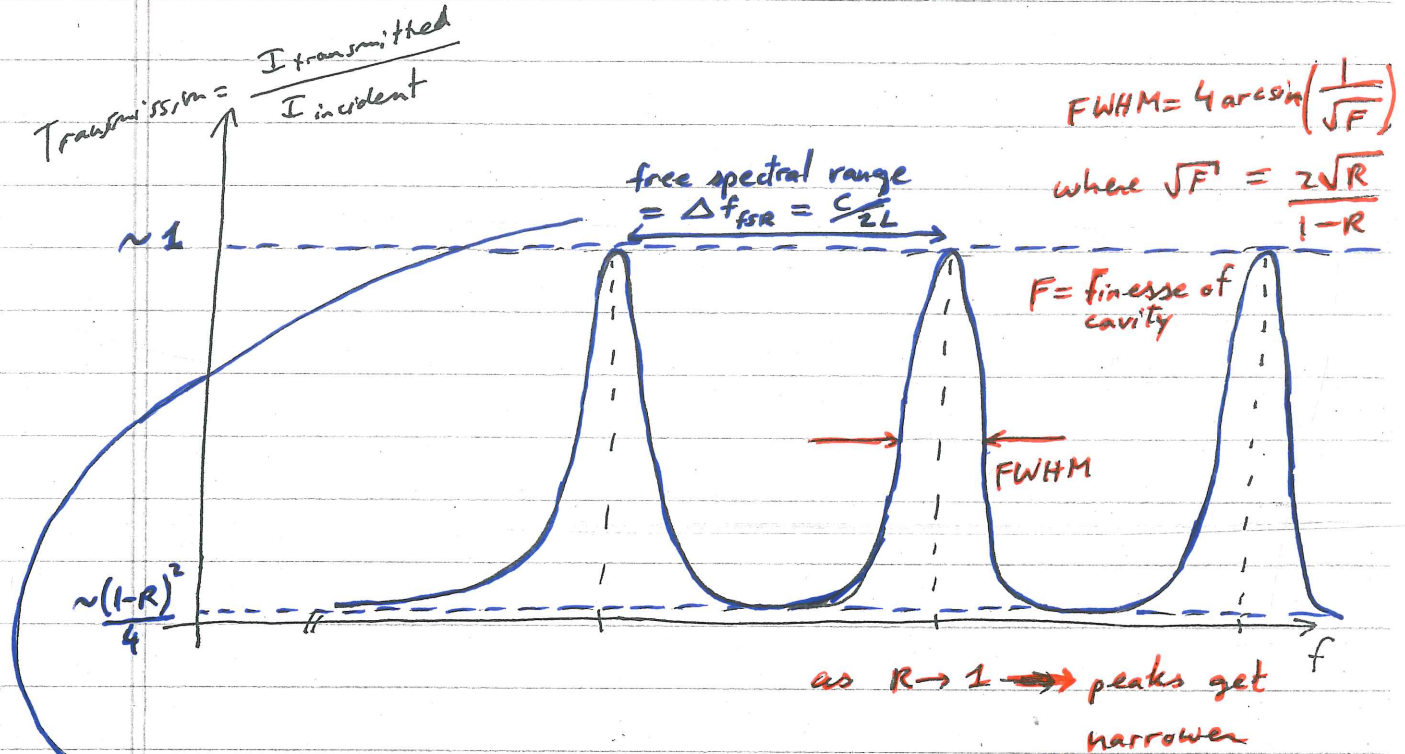 Transmission = I transmitted / I incident
FWHM = 4 arcsin(1/√F)
where √F = 2√R / 1-R
free spectral range
= Δf_fSR = c/2L
~1
F = finesse of
cavity
FWHM
~(1-R)² / 4
f
as R → 1 → peaks get
narrower